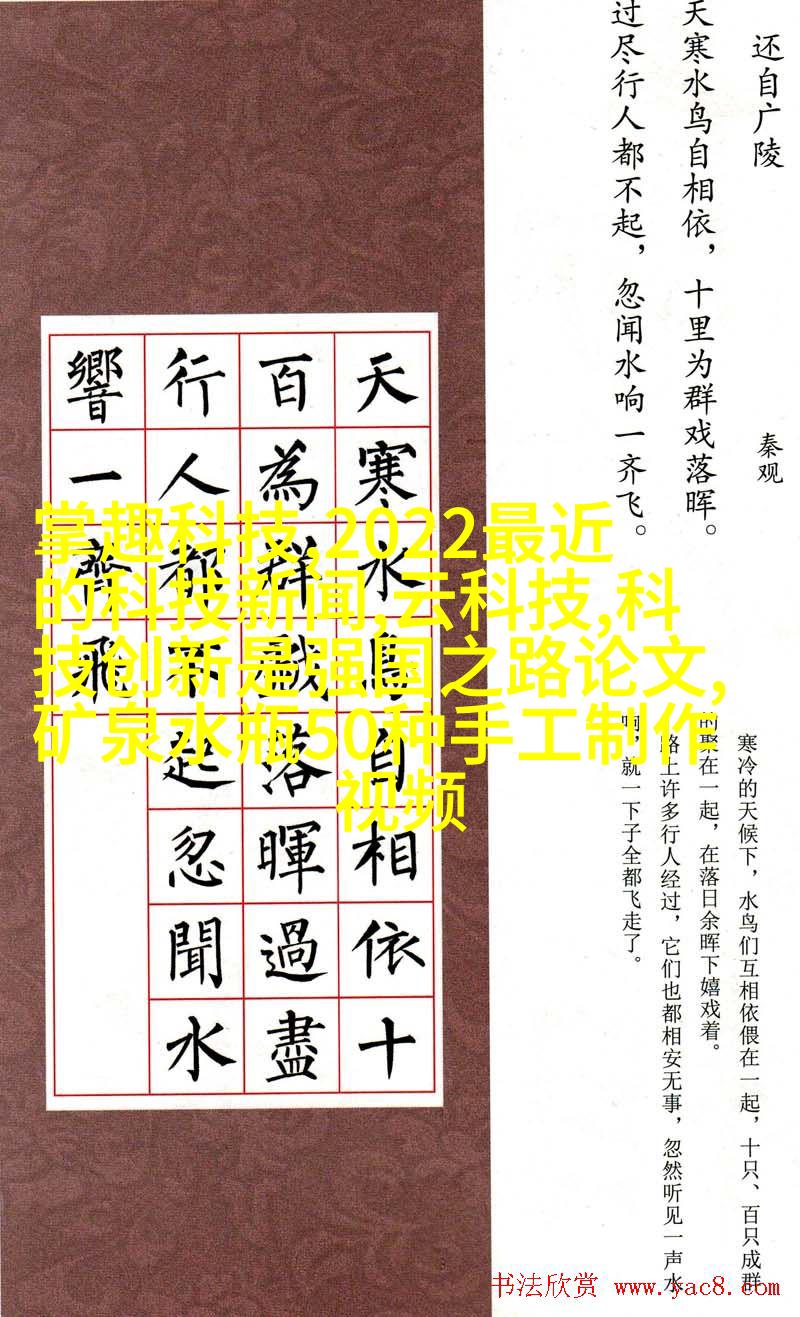 还自广陵
秦观
天寒水鸟自相依，十里为群戏落晖。
过尽行人都不起，忽闻水响一齐飞。
天寒水鳥自相依十
百為群戲落暉過盡
行人都不起忽聞水
響一齊飛
掌趣科技,2022最近
的科技新闻,云科技,科
技创新是强国之路论文,
矿泉水瓶50种手工制作
视频
寒冷的天候下，水鸟们互相依偎在一起，十只、百只成群
的聚在一起，在落日余晖下嬉戏着。
路上许多行人经过，它们也都相安无事，忽然听见一声水
响，就一下子全都飞走了。
书法欣赏 www.yac8.com